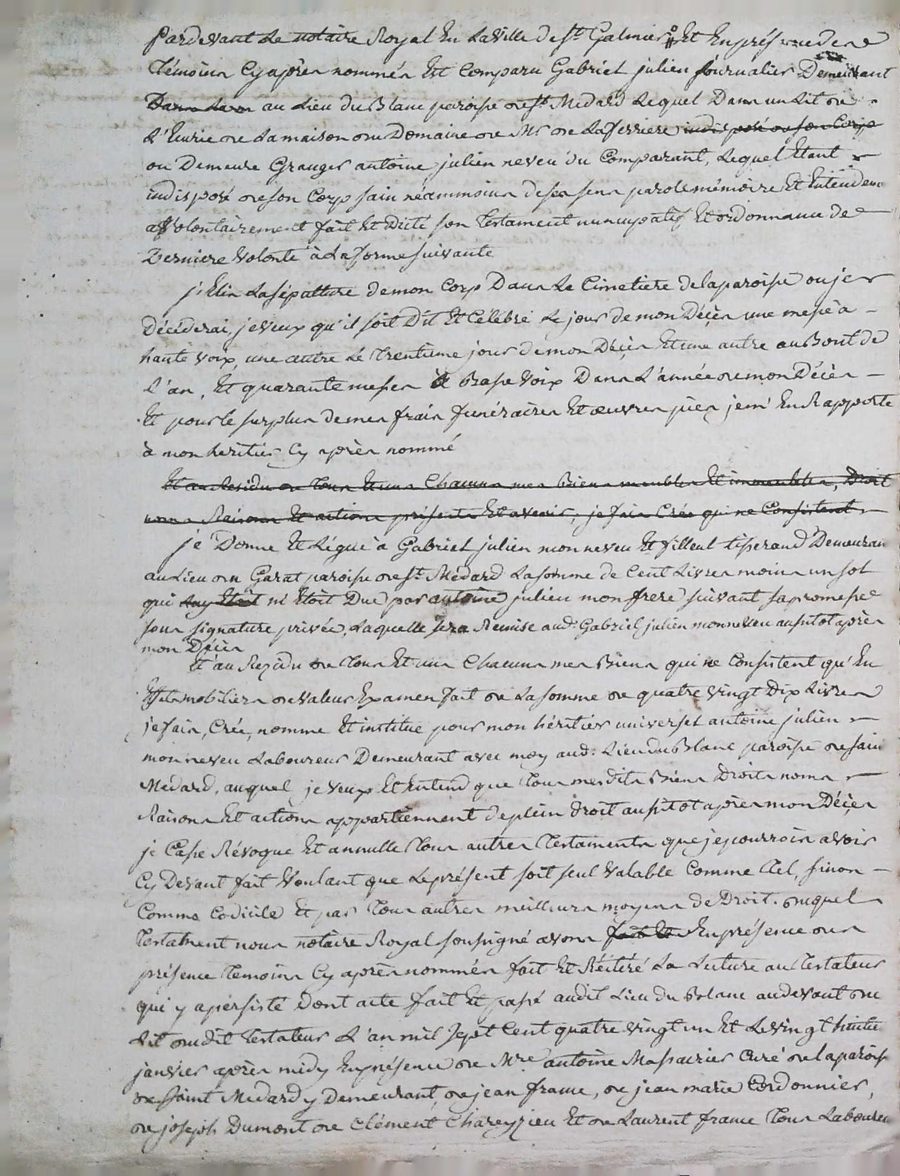 Pardevant Le notaire Royal En La Ville de St Galmier Et En présence de
Témoins Cy après nommés Est Comparu Gabriel julien journalier Demeurant
Dans La au Lieu Du Blanc paroisse de St Médard Lequel Dans un Lit de
L'Ecurie de La maison du Domaine de Mr de Laferriere indisposé de son Corp
ou Demeure Granger antoine julien neveu du Comparant, Lequel Etant
indisposé de son Corp sain néanmoins de ses sens parole mémoire Et Entendem
a Volontairement fait Et Dicté son Testament nuncupatif Et ordonnance de
Derniere Volonté à La forme suivante
j'Elis La sépulture de mon Corp Dans Le Cimetiere de la paroisse ou je
Décéderai, je veux qu'il soit Dit Et Célébré Le jour de mon Décès une messe à
haute voix une autre Le Trentieme jour de mon Décès Et une autre au Bout de
L'an, Et quarante messes à Basse Voix Dans L'année de mon Décès
Et pour le surplus de mes frais funéraires Et œuvres pies je m'En Rapporte
à mon heritier Cy après nommé
Et au Residu de Tous Et uns Chacuns mes Biens meubles Et immeubles, Droit
noms Raisons Et actions présents Et avenir, je fais Crée qui ne Consistent
je Donne Et Légue à Gabriel julien mon neveu Et filleul tisserand Demeurant
au Lieu du Garat paroisse de St Médard La somme de Cent Livres moins un sol
qui Luy Etoit m'Etoit Due par antoine julien mon frere suivant sa promesse
sous signature privée, Laquelle sera Remise aud. Gabriel julien mon neveu aussitot après
mon Décès
Et au Rezidu de Tous Et uns Chacuns mes Biens qui ne Consistent qu'En
Effets mobiliers de Valeur Examen fait de La somme de quatre vingt Dix Livres
je fais, Crée, nomme Et institue pour mon héritier universel antoine julien
mon neveu Laboureur Demeurant avec moy aud. Lieu du Blanc paroisse de Saint
Médard, auquel je veux Et Entend que Tous mesdits Biens Droits noms
Raisons Et actions appartiennent de plein droit aussitot après mon Décès
je Casse Révoque Et annulle Tous autres Testaments que je pourrois avoir
Cy Devant fait Voulant que Le présent soit seul Valable Comme Tel, sinon
Comme Codicile Et par Tous autres meilleurs moyens de Droit. duquel
Testament nous notaire Royal soussigné avons fait Et En présence des
présence Temoins Cy après nommés fait Et Réitéré La Lecture au Testateur
qui y a persisté Dont acte fait Et passé audit Lieu du Blanc au devant du
Lit dudit Testateur L'an mil sept Cent quatre vingt un Et Le vingt huitie
janvier après midy En présence de Mre antoine Massacrier Curé de la paroisse
de Saint Médard y Demeurant, de jean france, de jean marie Cordonnier,
de joseph Dumont de Clément Chareyzieu Et de Laurent france Tous Laboureu